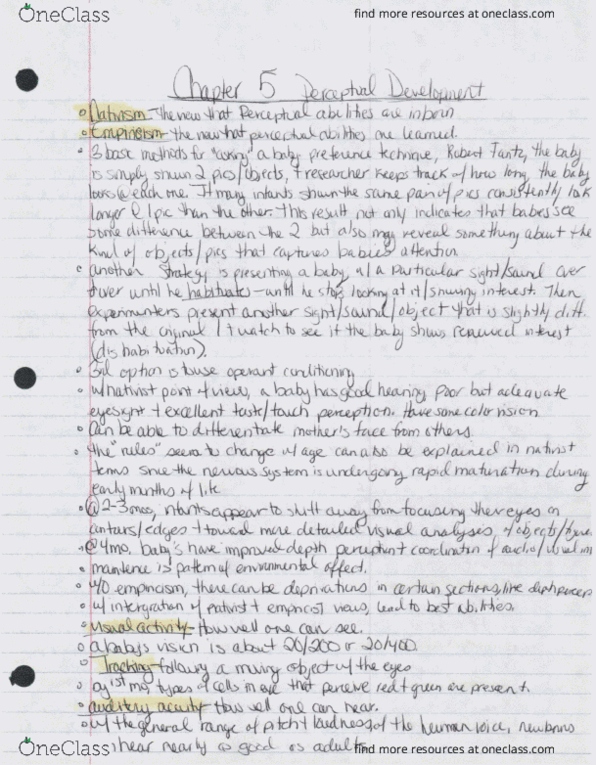 OneClass
find more resources at oneclass.com
Chapter 5 Perceptual Development
Nativism - The view that Perceptual abilities are inborn
Empiricism - the view that perceptual abilities are learned.
3 base methods for "asking" a baby preference technique, Robert Fantz, the baby
is simply shown 2 pics/objects, + researcher keeps track of how long, the baby
looks @ each one. If many infants shown the same pair of pics consistently look
longer @ 1 pic than the other. This result not only indicates that babies see
some difference between the 2 but also may reveal something about the
kind of objects/pics that captures babies attention
another strategy is presenting a baby w/a particular sight/sound over
+ over until he habituates - until he stops looking at it/showing interest. Then
experimenters present another sight/sound/object that is slightly diff.
from the original + watch to see if the baby shows renewed interest
(dishabituation).
3rd option is to use operant conditioning
w/nativist point of view, a baby has good hearing, poor but adequate
eyesight + excellent taste/touch perception. Have some color vision
Can be able to differentiate mother's face from others.
the "rules" seem to change w/age can also be explained in nativist
terms since the nervous system is undergoing rapid maturation during
early months of life
@ 2-3 mos, infants appear to shift away from focusing their eyes on
/edges + toward more detailed visual analyses of objects/
@ 4mo, baby's have improved depth perception + coordination of audio/visual
is pattern of environmental affect.
w/o empiricism, there can be deprivations in certain sections, like depth
w/ intergration of nativist + empiricist views, lead to best abilities.
Visual activity - How well one can see.
a babys vision is about 20/200 or 20/400.
Tracking - following a moving object w/ the eyes
by 1st mo, types of cells in eye that perceive red + green are present.
auditory acuity - How well one can hear.
w/ the general range of pitch + loudness of the human voice, newborns
hear nearly as good as adults
OneClass
find more resources at oneclass.com